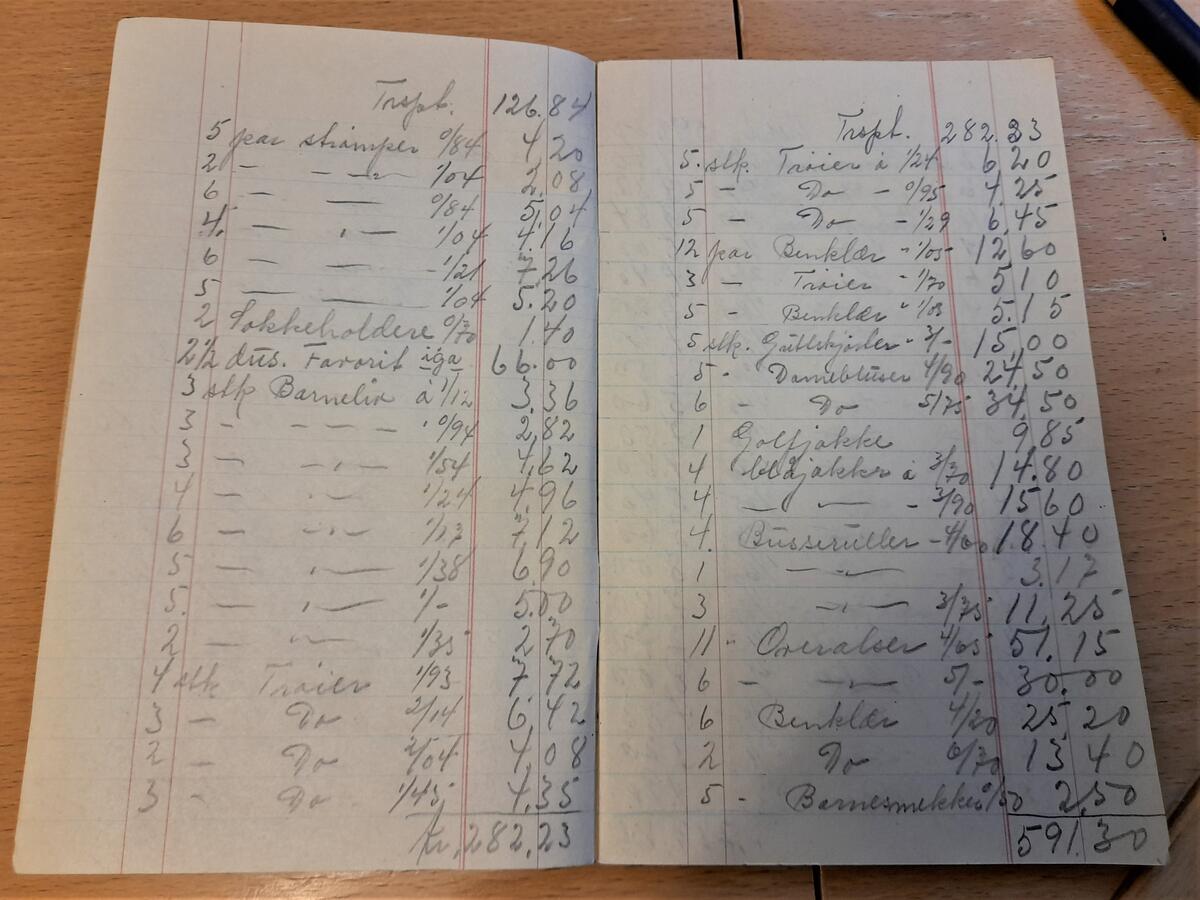 Trspt. 126.84
5 par strømper 0/84 4 20
2 - - - - 1/04 2.08
6 — — 0/84 5.04
4. — , — 1/04 4.16
6 — — - 1/21 7.26
5 — — 1/04 5.20
2 Sokkeholdere 0/70 1.40
2 1/2 dus. Favorit iga 66.00
3 stk Barneliv à 1/12 3.36
3 - - - - 0/94 2,82
3 — - , — 1/54 4,62
4 — - , - 1/24 4.96
6 — - , — 1/17 7,12
5 — , — 1/38 6,90
5. — , — 1/- 5.00
2 — - , - 1/35 2,70
4 stk Trøier 1/93 7.72
3 - Do 2/14 6,42
2 - Do 2/04 4,08
3 - Do 1/45 4,35
Kr. 282,23
Trspt. 282.23
5. stk. Trøier à 1/24 6 20
5 - Do - 0/95 4.25
5 — Do - 1/29 6.45
12 par Benklær - 1/05 12,60
3 — Trøier - 1/70 5 10
5 - Benklær " 1/03 5.15
5 stk. Guttskjorter - 3/- 15,00
5 - Damebluser 4/90 24,50
6 - Do 5/75 34,50
1 Golfjakke 9,85
4 blåjakker à 3/70 14.80
4 — - — - 3/90 15 60
4. Busseruller - 4/60 18.40
1 — - — 3.17
3 - , — 3/75 11,25
11 - Overalser 4/65 51.15
6 — - , — 5/- 30.00
6 Benklær 4/20 25 20
2 Do 6/70 13 40
5 - Barnesmekker 0/50 2,50
591.30